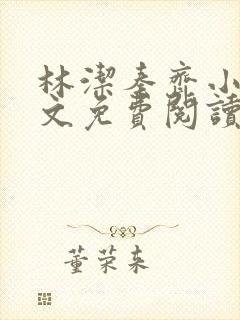 林潔秦齊小
文免費閱讀
董荣来